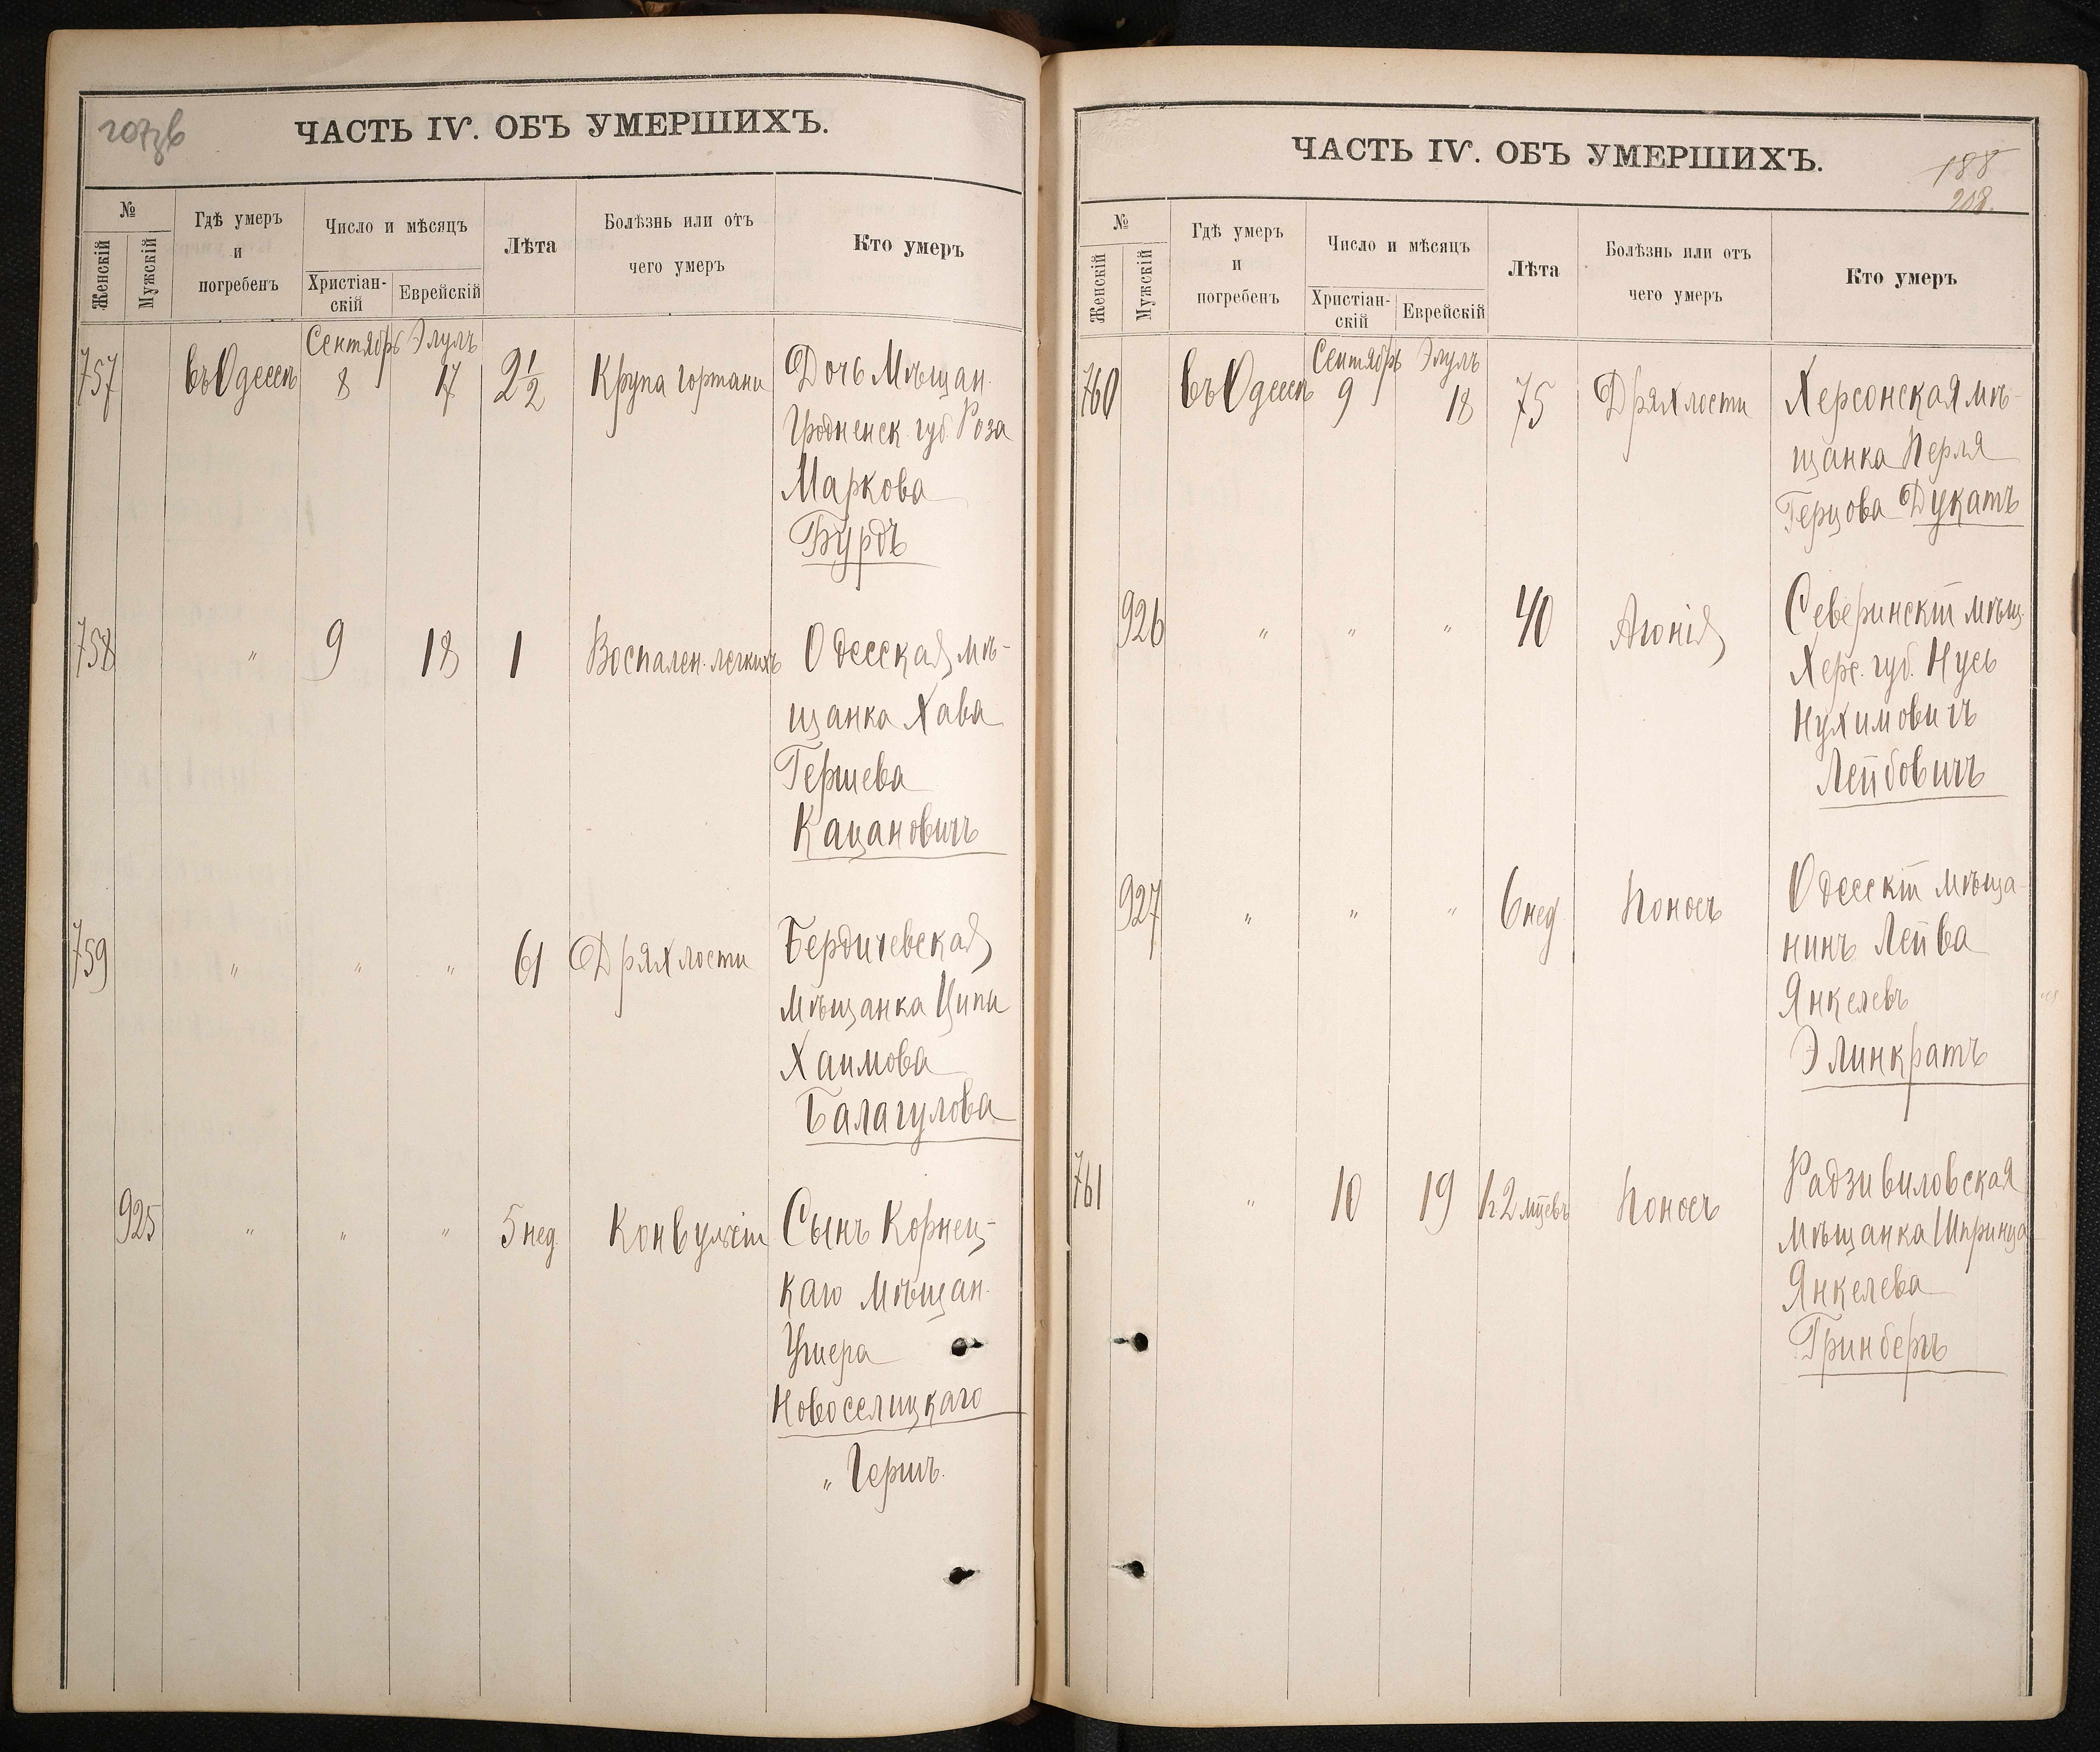 207зв
ЧАСТЬ IV. ОБЪ УМЕРШИХЪ.
№
Женскій
Мужскій
Гдѣ умеръ
и
погребенъ
Число и мѣсяцъ
Христіан-
скій
Еврейскій
Лѣта
Болѣзнь или отъ
чего умеръ
Кто умеръ
Сентябрь Элулъ
757 въ Одессѣ 8 17 2½ Крупа гортани Дочь Мѣщан.
Гродненск. губ. Роза
Маркова
Бурдъ
758 " 9 18 1 Воспален. легкихъ Одесская мѣ-
щанка Хава
Гершева
Кацановичъ
759 " " " 61 Дряхлости Бердичевская
Мѣщанка Ципа
Хаимова
Балагулова
925 " " " 5 нед. Конвульсіи Сынъ Корнец-
каго Мѣщан.
Ушера
Новоселицкаго
" Гершъ.
ЧАСТЬ IV. ОБЪ УМЕРШИХЪ.
188
208.
№
Женскій
Мужскій
Гдѣ умеръ
и
погребенъ
Число и мѣсяцъ
Христіан-
скій
Еврейскій
Лѣта
Болѣзнь или отъ
чего умеръ
Кто умеръ
Сентябрь Элулъ
760 въ Одессѣ 9 18 75 Дряхлости Херсонская мѣ-
щанка Перля
Герцова Дукатъ
926 " " " 40 Агонія Северинскій мѣщ.
Херс. губ. Нусь
Нухимовичъ
Лейбовичъ
927 " " " 6 нед. Поносъ Одесскій мѣща-
нинъ Лейва
Янкелевъ
Элинкратъ
761 " 10 19 Поносъ Радзивиловская
Мѣщанка Шпринца
Янкелева
Гринберъ